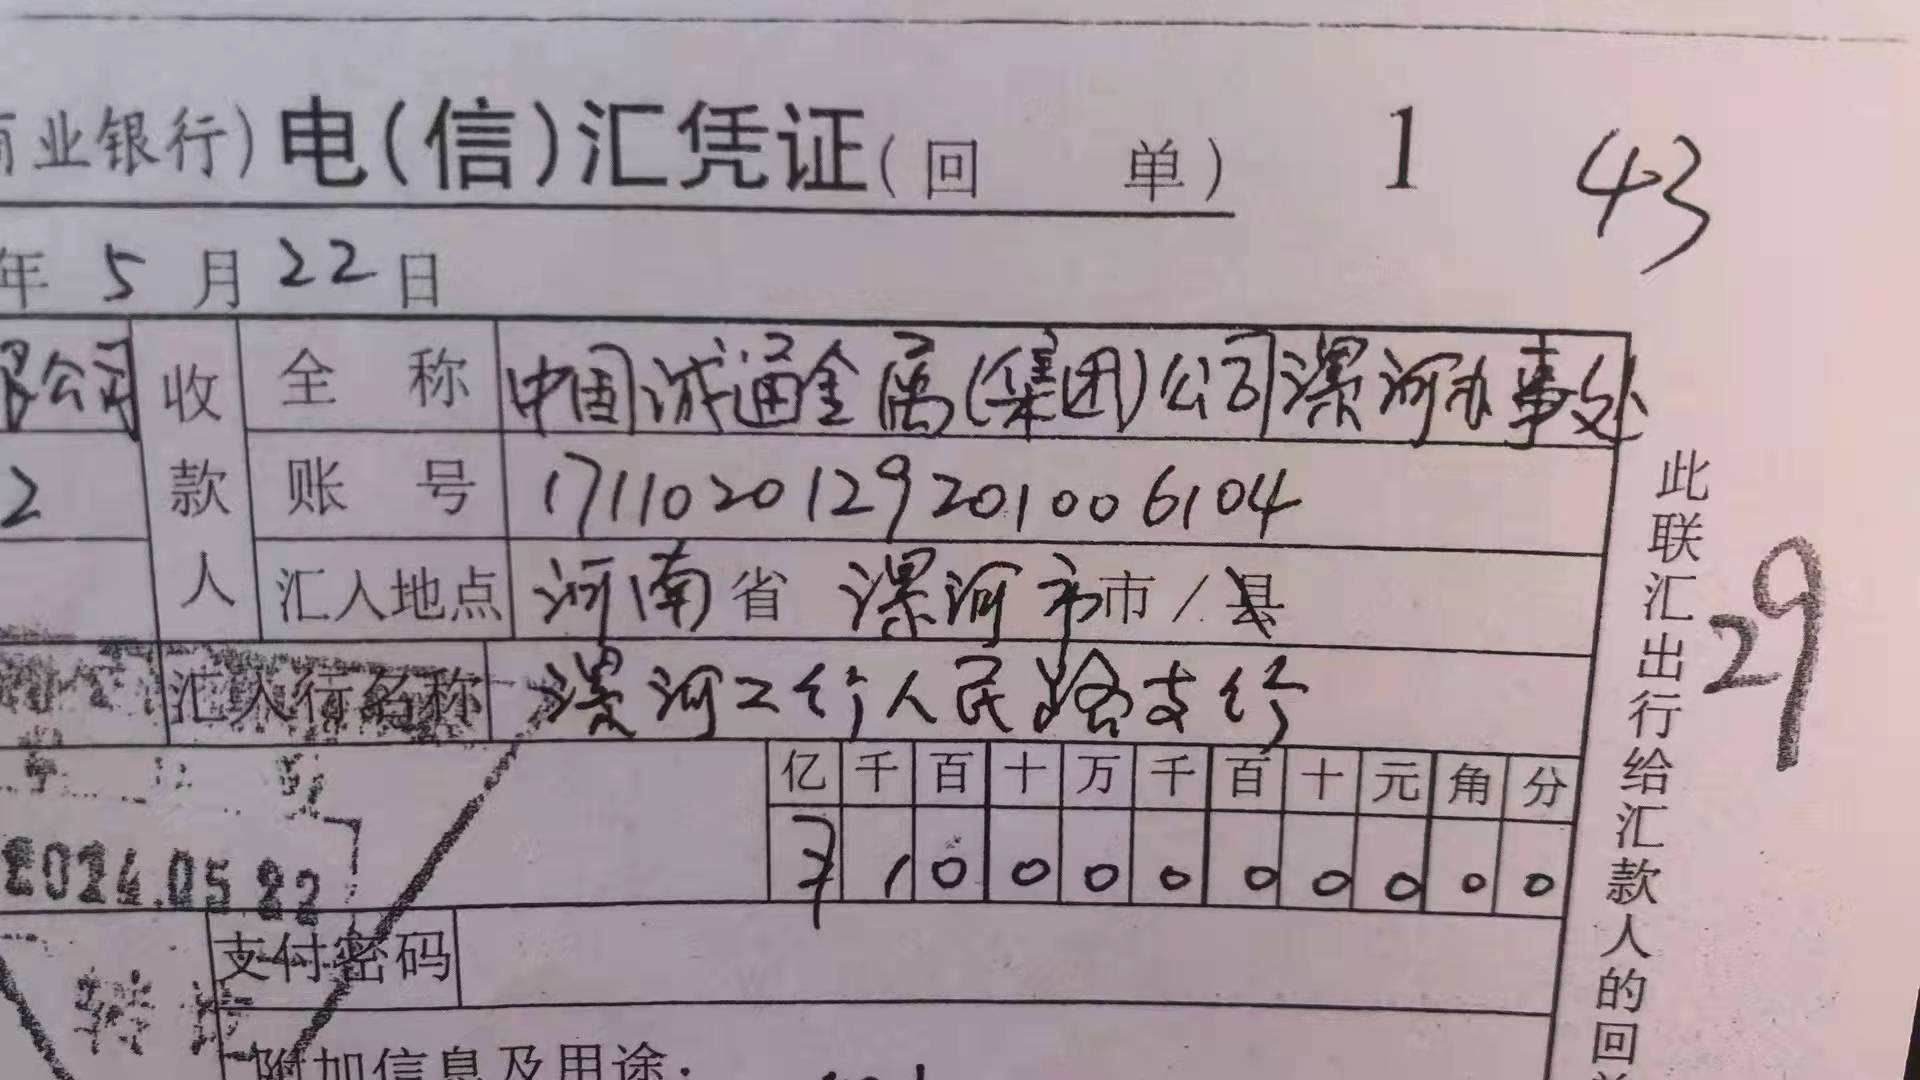 商业银行)电(信)汇凭证(回 单) 1 43
年 5 月 22 日
限公司 收款人 全 称 中国诚通金属(集团)公司漯河办事处
2 账 号 1711020129201006104
汇入地点 河南省 漯河市市/县
汇入行名称 漯河工行人民路支行
亿 千 百 十 万 千 百 十 元 角 分
1 0 0 0 0 0 0 0 0 0
2024.05.22
支付密码
转
附加信息及用途:
此联汇出行给汇款人的回
29